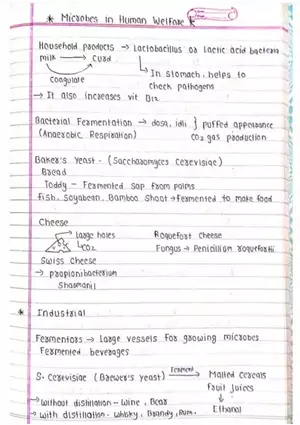 * Microbes in Human Welfare *
Household products → Lactobacillus or lactic acid bacteria
milk → Curd
Coagulate
In stomach, helps to
check pathogens
→ It also increases vit B12
Bacterial Fermentation → dosa, idli } puffed appearance
(Anaerobic Respiration) CO2 gas production
Baker's Yeast - (Saccharomyces Cerevisiae)
Bread
Toddy - Fermented sap from palms
fish, Soyabean, Bamboo Shoot → fermented to make food
Cheese
large holes
CO2
Roquefort Cheese
Fungus → Penicillium roqueforti
Swiss Cheese
→ propionibacterium
Sharmanii
* Industrial
Fermentors → Large vessels for growing microbes
Fermented beverages
S. Cerevisiae (Brewer's yeast) Ferment → Malted cereals
fruit juices
↓
Ethanol
→ Without distillation - Wine, Bear
→ With distillation - Whisky, Brandy, Rum.